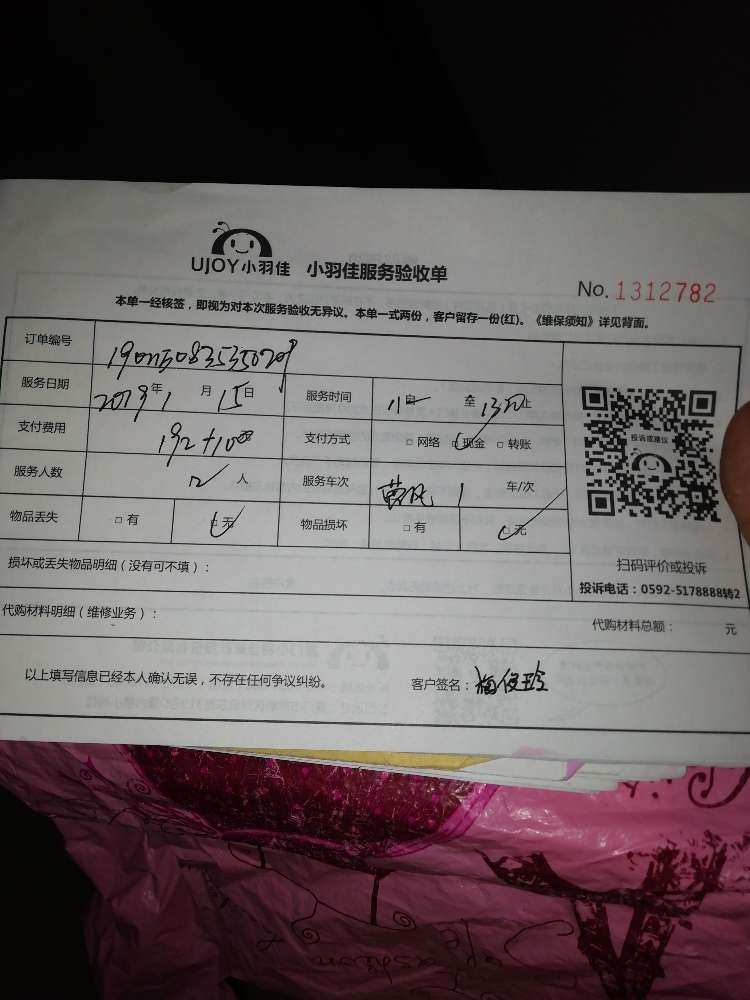 UJOY小羽佳 小羽佳服务验收单
No. 1312782
本单一经核签，即视为对本次服务验收无异议。本单一式两份，客户留存一份(红)。《维保须知》详见背面。
订单编号
服务日期 2019年1月15日 服务时间 至 止
支付费用 192+100 支付方式 □网络 □现金 □转账
服务人数 2人 服务车次 1 车/次
物品丢失 □有 □无 物品损坏 □有 □无
投诉或建议
扫码评价或投诉
投诉电话：0592-5178888转2
损坏或丢失物品明细（没有可不填）：
代购材料明细（维修业务）： 代购材料总额： 元
以上填写信息已经本人确认无误，不存在任何争议纠纷。 客户签名：